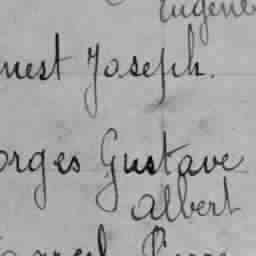 Eugène
nest Joseph.
orges Gustave
Albert